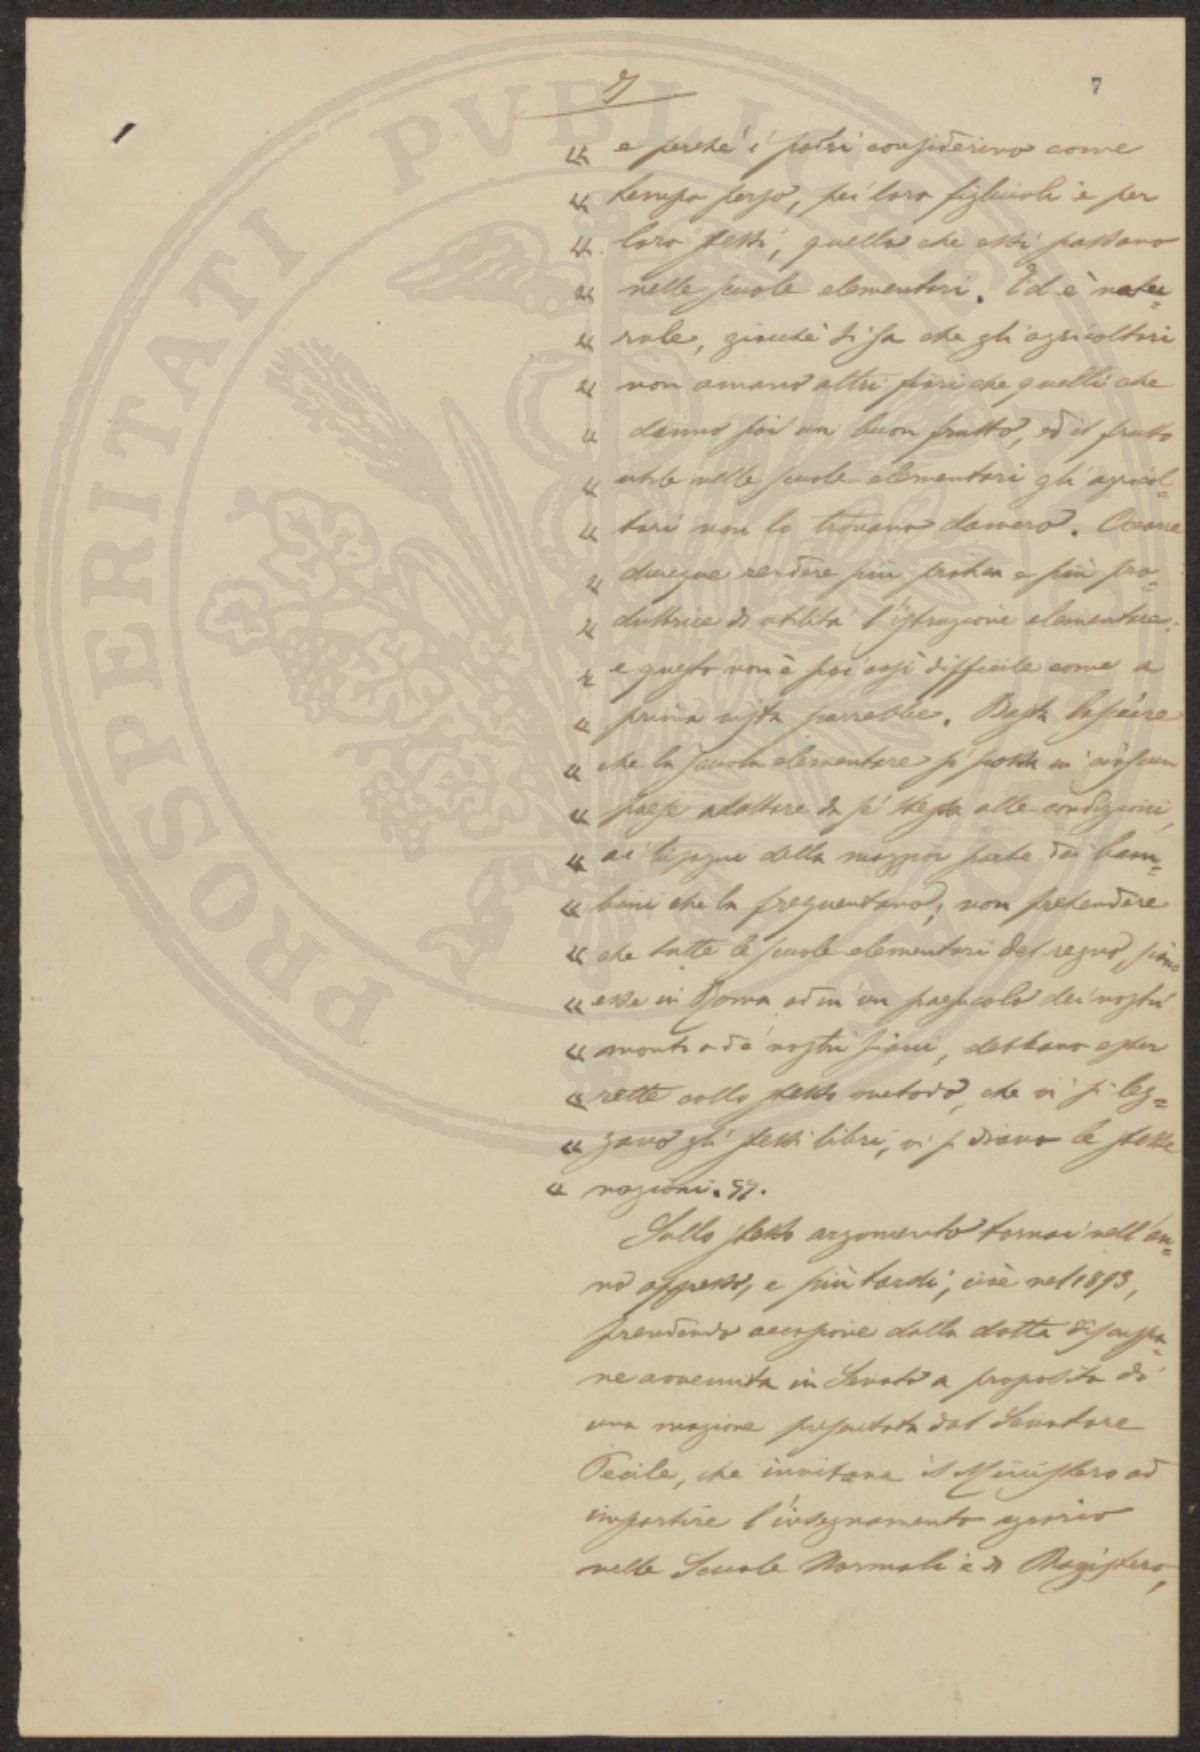 7
7
« e perché i padri considerino come
« tempo perso, pei loro figliuoli e per
« loro stessi, quello che essi passano
« nelle scuole elementari. Ed è natu=
« rale, giacché si sa che gli agricoltori
« non amano altri fiori che quelli che
« danno poi un buon frutto, ed il frutto
« utile nelle scuole elementari gli agricol=
« tori non lo trovano davvero. Occorre
« dunque rendere più pratica e più pro=
« duttrice di utilità l'istruzione elementare:
« e questo non è poi così difficile come a
« prima vista parrebbe. Basta lasciare
« che la scuola elementare si possa in ciascun
« paese adattare da sé stessa alle condizioni,
« ai bisogni della maggior parte dei bam=
« bini che la frequentano; non pretendere
« che tutte le scuole elementari del regno, siano
« esse in Roma od in un paesucolo dei nostri
« monti o de' nostri piani, debbano esser
« rette collo stesso metodo, che vi si leg=
« gano gli stessi libri, vi si diano le stesse
« nozioni. ».
Sullo stesso argomento tornai nell'an=
no appresso, e più tardi, cioè nel 1893,
prendendo occasione dalla dotta discussio=
ne avvenuta in Senato a proposito di
una mozione presentata dal Senatore
Pecile, che invitava il Ministero ad
impartire l'insegnamento agrario
nelle Scuole Normali e di Magistero,
PROSPERITATI PVBLICAE